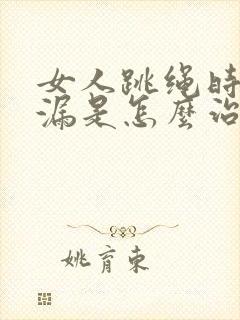 女人跳绳时
漏是怎麼治
姚育東